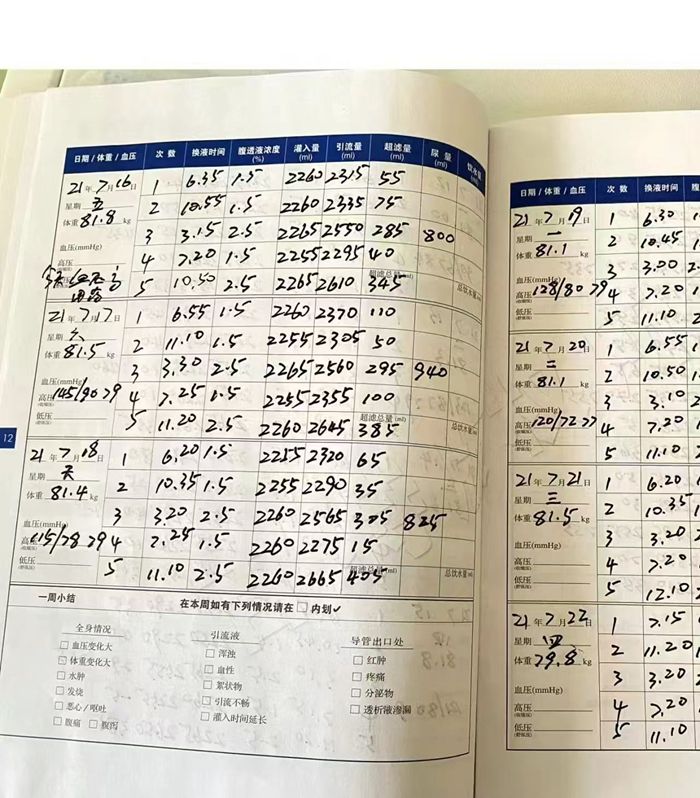 日期/体重/血压 次数 换液时间 腹透液浓度(%) 灌入量(ml) 引流量(ml) 超滤量(ml) 尿量(ml) 饮水量
21年7月16日 1 6.35 1.5 2260 2315 55
星期五 2 10.55 1.5 2260 2335 75
体重81.8kg 3 3.15 2.5 2265 2550 285 800
血压(mmHg)
高压 4 7.20 1.5 2255 2295 40
5 10.50 2.5 2265 2610 超滤总量(ml) 345 总饮水量
21年7月17日 1 6.55 1.5 2260 2370 110
星期六 2 11.10 1.5 2255 2305 50
体重81.5kg 3 3.30 2.5 2265 2560 295 940
血压(mmHg)
高压(收缩压) 145/90 79 4 7.25 1.5 2255 2355 100
低压(舒张压) 5 11.20 2.5 2260 2645 超滤总量(ml) 385 总饮水量
21年7月18日 1 6.20 1.5 2255 2320 65
星期天 2 10.35 1.5 2255 2290 35
体重81.4kg 3 3.20 2.5 2260 2565 305 825
血压(mmHg)
高压(收缩压) 115/78 79 4 7.25 1.5 2260 2275 15
低压(舒张压) 5 11.10 2.5 2260 2665 超滤总量(ml) 405 总饮水量
一周小结 在本周如有下列情况请在□内划✓
全身情况 引流液 导管出口处
□血压变化大 □浑浊 □红肿
□体重变化大 □血性 □疼痛
□水肿 □絮状物 □分泌物
□发烧 □引流不畅 □透析液渗漏
□恶心/呕吐 □灌入时间延长
□腹痛 □腹泻
12
日期/体重/血压 次数 换液时间 腹
21年7月19日 1 6.30
星期一 2 10.45
体重81.1kg 3 3.00 2.
血压(mmHg)
高压(收缩压) 128/80 79 4 7.20
低压(舒张压) 5 11.10
21年7月20日 1 6.55
星期二 2 10.50
体重81.1kg 3 3.10
血压(mmHg)
高压(收缩压) 120/72 77 4 7.20
低压(舒张压) 5 11.10
21年7月21日 1 6.20
星期三 2 10.35
体重81.5kg 3 3.20
血压(mmHg)
高压(收缩压) 4 7.20
低压(舒张压) 5 12.10
21年7月22日 1 7.15
星期四 2 11.20
体重79.8kg 3 3.20
血压(mmHg)
高压(收缩压) 4 7.20
低压(舒张压) 5 11.10